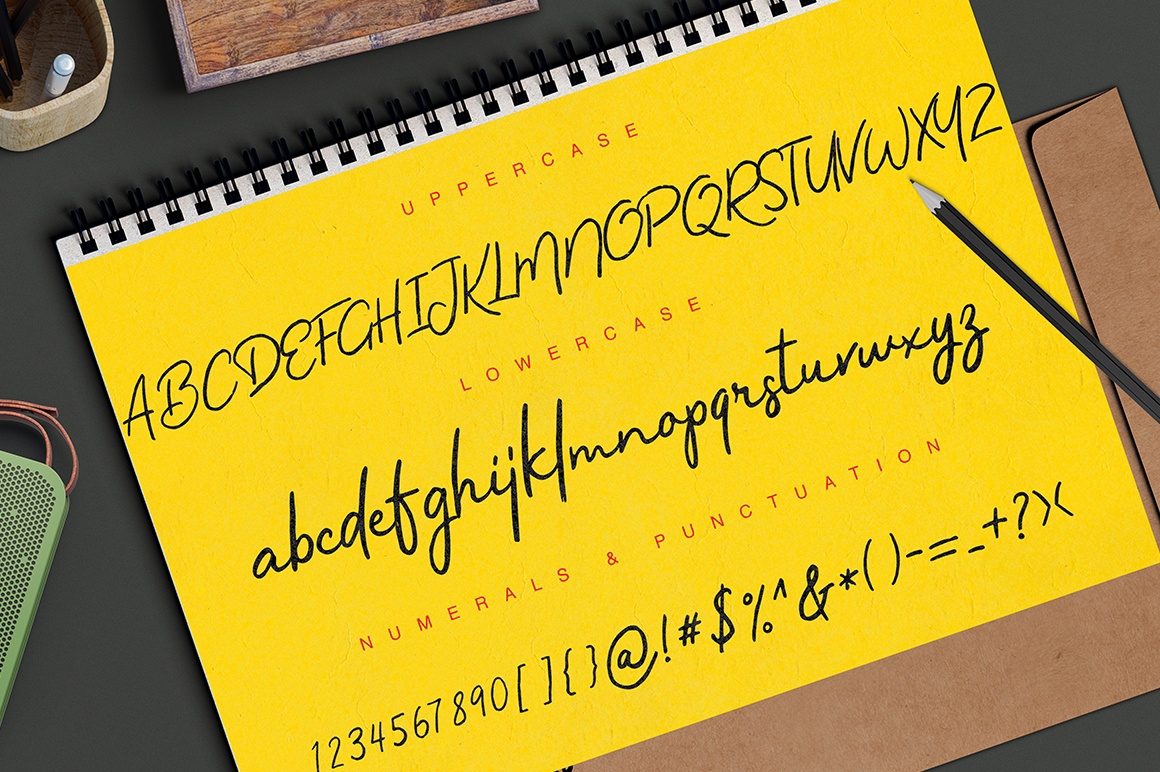 UPPERCASE
ABCDEFGHIJKLMNOPQRSTUVWXYZ
LOWERCASE
abcdefghijklmnopqrstuvwxyz
NUMERALS & PUNCTUATION
1234567890[]{}@!#$%^&*()-=_+?><